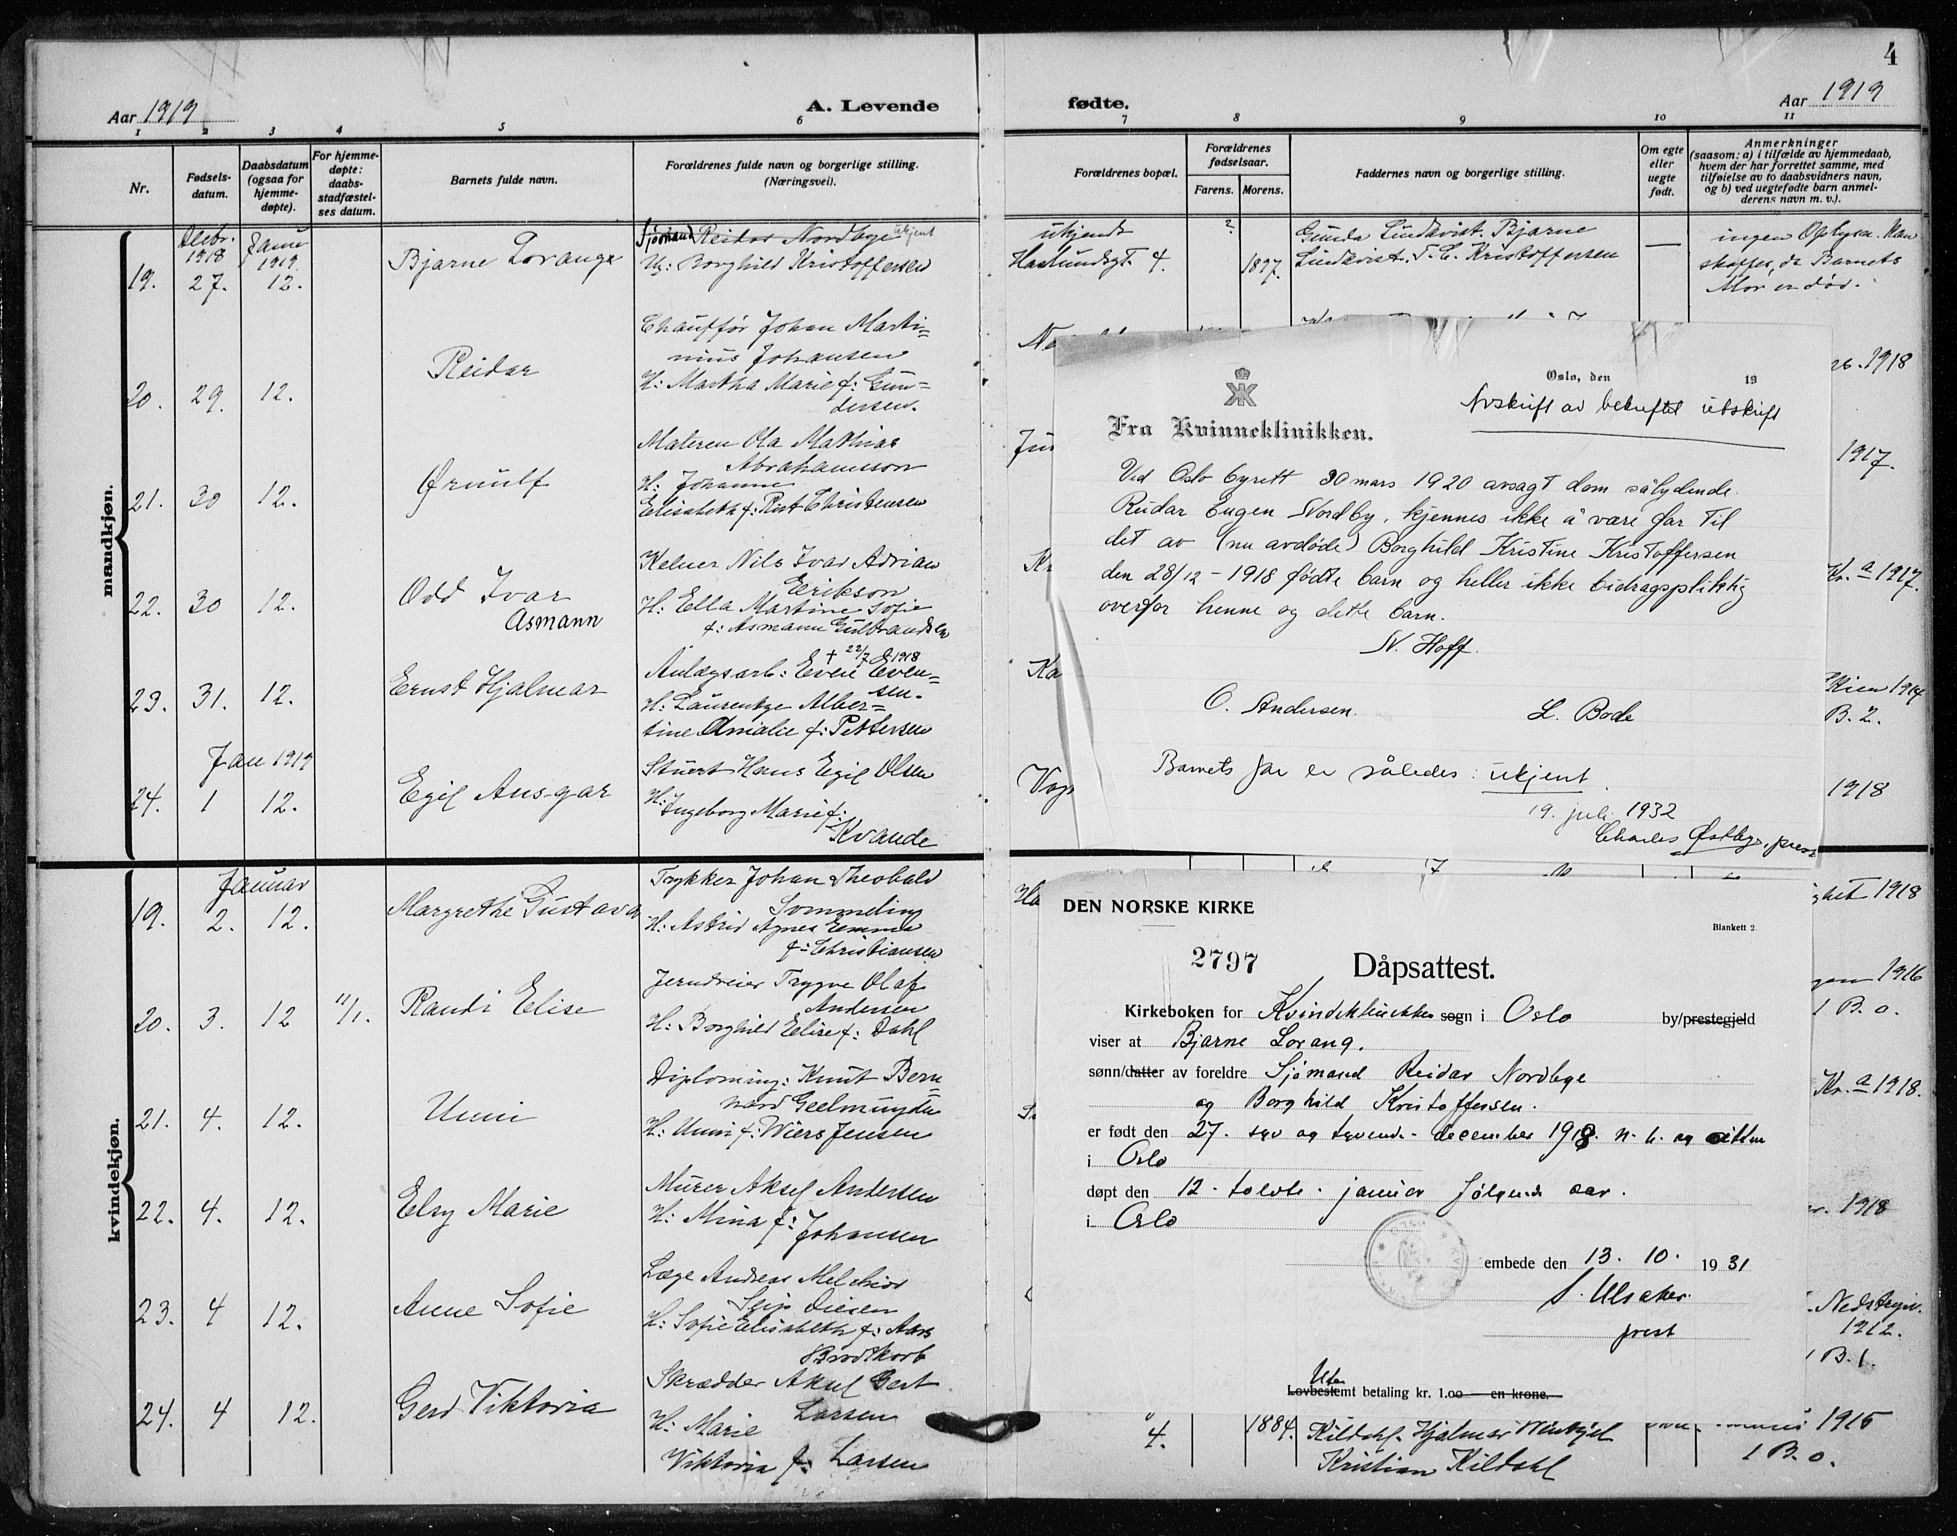 4
Aar 1919
A. Levende
fødte.
Aar 1919
1 2 3 4 5 6 7 8 9 10 11
Nr.
Fødsels-
datum.
Daabsdatum
(ogsaa for
hjemme-
døpte).
For hjemme-
døpte:
daabs-
stadfæstel-
ses datum.
Barnets fulde navn.
Forældrenes fulde navn og borgerlige stilling.
(Næringsvei).
Forældrenes bopæl.
Forældrenes
fødselsaar.
Farens. Morens.
Faddernes navn og borgerlige stilling.
Om egte
eller
uegte
født.
Anmerkninger
(saasom: a) i tilfælde av hjemmedaab,
hvem der har forrettet samme, med
tilføielse av to daabsvidners navn,
og b) ved uegtefødte barn anmel-
derens navn m. v.).
mandkjøn.
Decbr. Januar
1918 1919
19. 27. 12. Bjarne Lorange
Sjømand Reidar Nordbye ukjent
Ug: Borghild Kristoffersen
ukjendt
Haslundsgt. 4.
? 1897.
Gunda Lindkvist. Bjarne
Lindkvist. T. C. Kristoffersen
ingen Oplysn. kan
skaffes, da Barnets
Mor er død.
20. 29. 12. Reidar
Chauffør Johan Marti=
nius Johansen
H: Martha Marie f: Gun=
dersen.
1918
21. 30 12. Ørnulf
Maleren Ola Mathias
Abrahamsson
H: Johanne
Elisabeth f: Rist Christensen
1917.
22. 30 12. Odd Ivar
Asmann
Kelner Nils Ivar Adrian
Erikson
H: Ella Martine Sofie
f: Asmann Gulbrandsen
Kr.a 1917.
23. 31. 12. Ernst Hjalmar
+ 22/7 1918
Anlægsarb: Even Even=
sen.
H: Laurentze Alber=
tine Amalie f: Pettersen
1914
B. 2.
Jan 1919
24. 1 12. Egil Ansgar
Stuert Hans Egil Olsen
H: Ingeborg Marie f:
Kvande
1918
kvindekjøn.
Januar
19. 2. 12. Margrethe Gustava
Trykker Johan Theobald
Sommelin
H: Astrid Agnes Emma
f: Christiansen
1918
20. 3. 12 11/1. Randi Elise
Jerndreier Trygve Olaf
Andersen
H: Borghild Elise f: Dahl
1916
1 B. 0.
21. 4. 12. Unni
Diploming: Knut Bern=
hard Geelmuyden
H: Unni f: Wiers Jensen
Kr.a 1918.
22. 4. 12. Elsy Marie
Murer Aksel Andersen
H: Mina f:
Johansen
1918
23. 4 12. Anne Sofie
Læge Andreas Melchior
Glip Diesen
H: Sofie Elisabeth f: Aars
Brodtkorb
Nedstryn.
1912.
1 B. 1.
24. 4 12. Gerd Viktoria
Skrædder Aksel Gert
Larsen
H: Marie
Viktoria f: Larsen
4.
1884.
Kildahl. Hjalmar
Kristian Kildahl
1915
1 B. 0.
Oslo, den 19
Avskrift av bekreftet utskrift
Fra Kvinneklinikken.
Ved Oslo byrett 30 mars 1920 avsagt dom sålydende.
Reidar Eugen Nordby, kjennes ikke å være far til
det av (nu avdøde) Borghild Kristine Kristoffersen
den 28/12 - 1918 fødte barn og heller ikke bidragspliktig
overfor henne og dette barn.
N. Hoff.
O. Andersen. L. Bode
Barnets far er således: ukjent.
19. juli 1932
Charles Østbye, prest
DEN NORSKE KIRKE
Blankett 2
2797 Dåpsattest.
Kirkeboken for Kvindeklinikken sogn i Oslo by/prestegjeld
viser at Bjarne Lorang.
sønn/datter av foreldre Sjømand Reidar Nordbye
og Borghild Kristoffersen.
er født den 27. syv og tyvende december 1918. n. h. og atten
i Oslo
døpt den 12. tolvte. januar følgende aar.
i Oslo
embede den 13. 10. 1931
S. Ulsaker.
prest
Uten
Lovbestemt betaling kr. 1.00 — en krone.